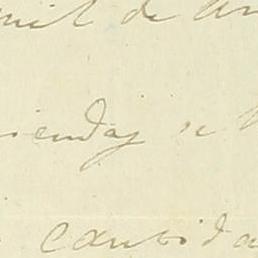 mil de
iendas se
cantida